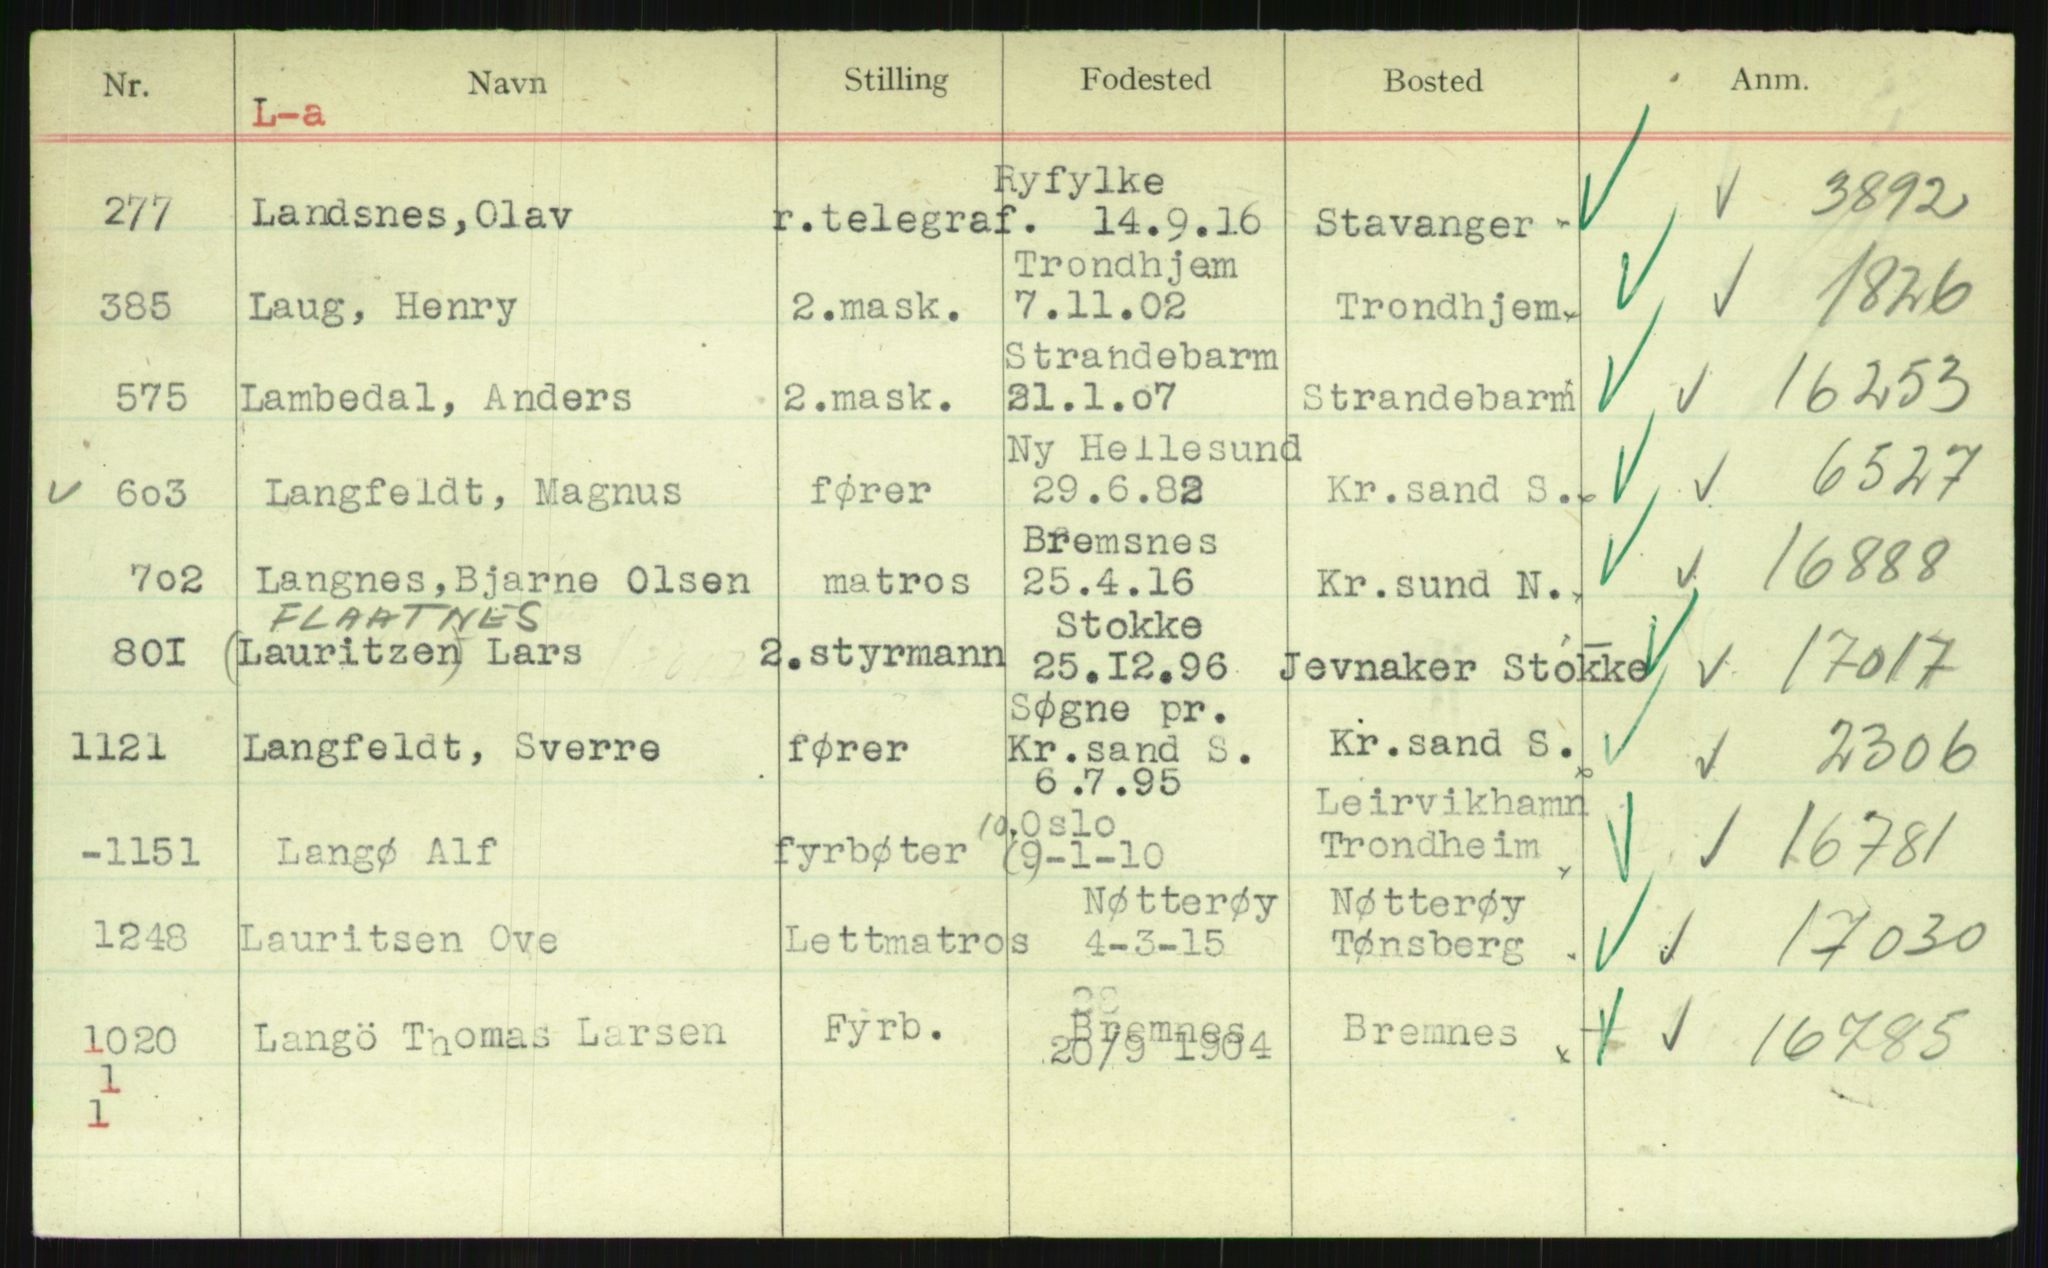 Nr. Navn Stilling Fodested Bosted Anm.
L-a
Ryfylke
277 Landsnes,Olav r.telegraf. 14.9.16 Stavanger ✓ ✓ 3892
Trondhjem
385 Laug, Henry 2.mask. 7.11.02 Trondhjem ✓ ✓ 1826
Strandebarm
575 Lambedal, Anders 2.mask. 21.1.o7 Strandebarm ✓ ✓ 16253
Ny Hellesund
✓ 6o3 Langfeldt, Magnus fører 29.6.82 Kr.sand S. ✓ ✓ 6527
Bremsnes
7o2 Langnes,Bjarne Olsen matros 25.4.16 Kr.sund N. ✓ ✓ 16888
FLAATNES Stokke
80I (Lauritzen) Lars 2.styrmann 25.I2.96 Jevnaker Stokke ✓ ✓ 17017
Søgne pr.
1121 Langfeldt, Sverre fører Kr.sand S. Kr.sand S. ✓ ✓ 2306
6.7.95
Leirvikhamn
10. Oslo
-1151 Langø Alf fyrbøter (9)-1-10 Trondheim ✓ ✓ 16781
Nøtterøy Nøtterøy
1248 Lauritsen Ove Lettmatros 4-3-15 Tønsberg ✓ ✓ 17030
Bremnes
1020 Langö Thomas Larsen Fyrb. 20/9 1904 Bremnes ✓ ✓ 16785
1
1